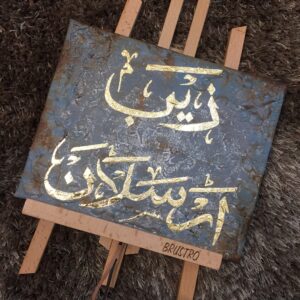 زیب
ارسلان
BRUSTRO